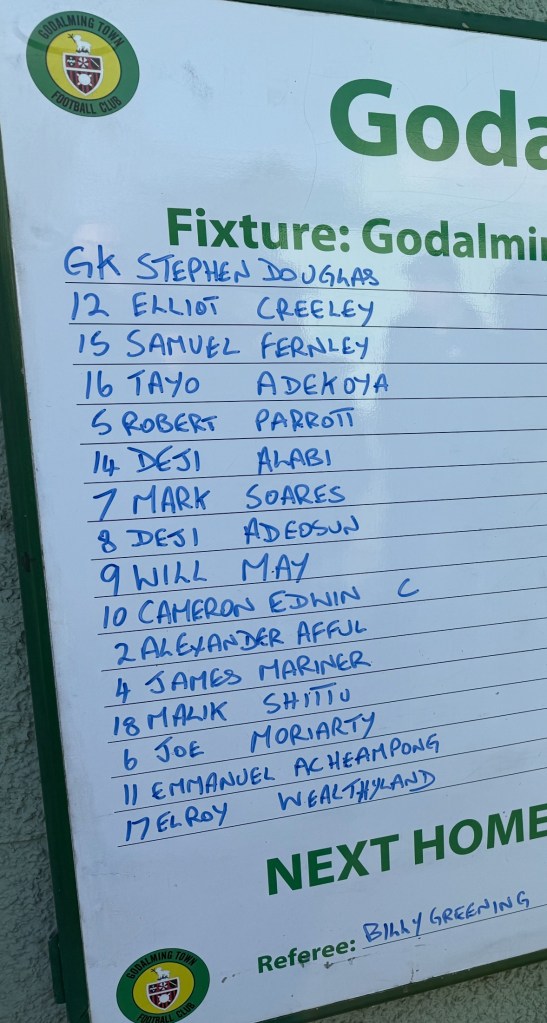 GODALMING TOWN
FOOTBALL CLUB
Goda
Fixture: Godalmin
GK STEPHEN DOUGLAS
12 ELLIOT CREELEY
15 SAMUEL FERNLEY
16 TAYO ADEKOYA
5 ROBERT PARROTT
14 DEJI ALABI
7 MARK SOARES
8 DEJI ADEOSUN
9 WILL MAY
10 CAMERON EDWIN C
2 ALEXANDER AFFUL
4 JAMES MARINER
18 MALIK SHITTU
6 JOE MORIARTY
11 EMMANUEL ACHEAMPONG
17 ELROY WEALTHYLAND
NEXT HOME
Referee: BILLY GREENING
GODALMING TOWN
FOOTBALL CLUB